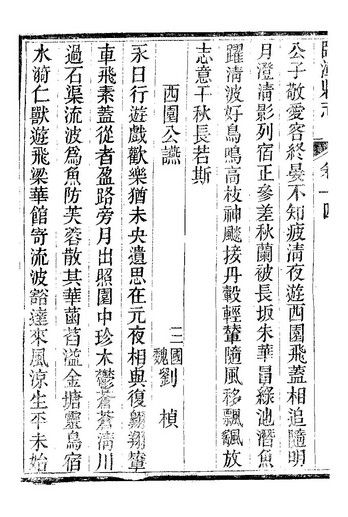 臨漳縣志
卷十四
公子敬愛客終晏不知疲清夜遊西園飛蓋相追隨明
月澄清影列宿正參差秋蘭被長坂朱華冒綠池潛魚
躍清波好鳥鳴高枝神飈接丹轂輕輦隨風移飄颻放
志意千秋長若斯
西園公讌
三國魏劉楨
永日行遊戲歡樂猶未央遺思在元夜相與復翱翔輦
車飛素蓋從者盈路旁月出照園中珍木鬱蒼蒼清川
過石渠流波爲魚防芙蓉散其華菡萏溢金塘靈鳥宿
水漪仁獸遊飛梁華館寄流波豁達來風涼生平未始